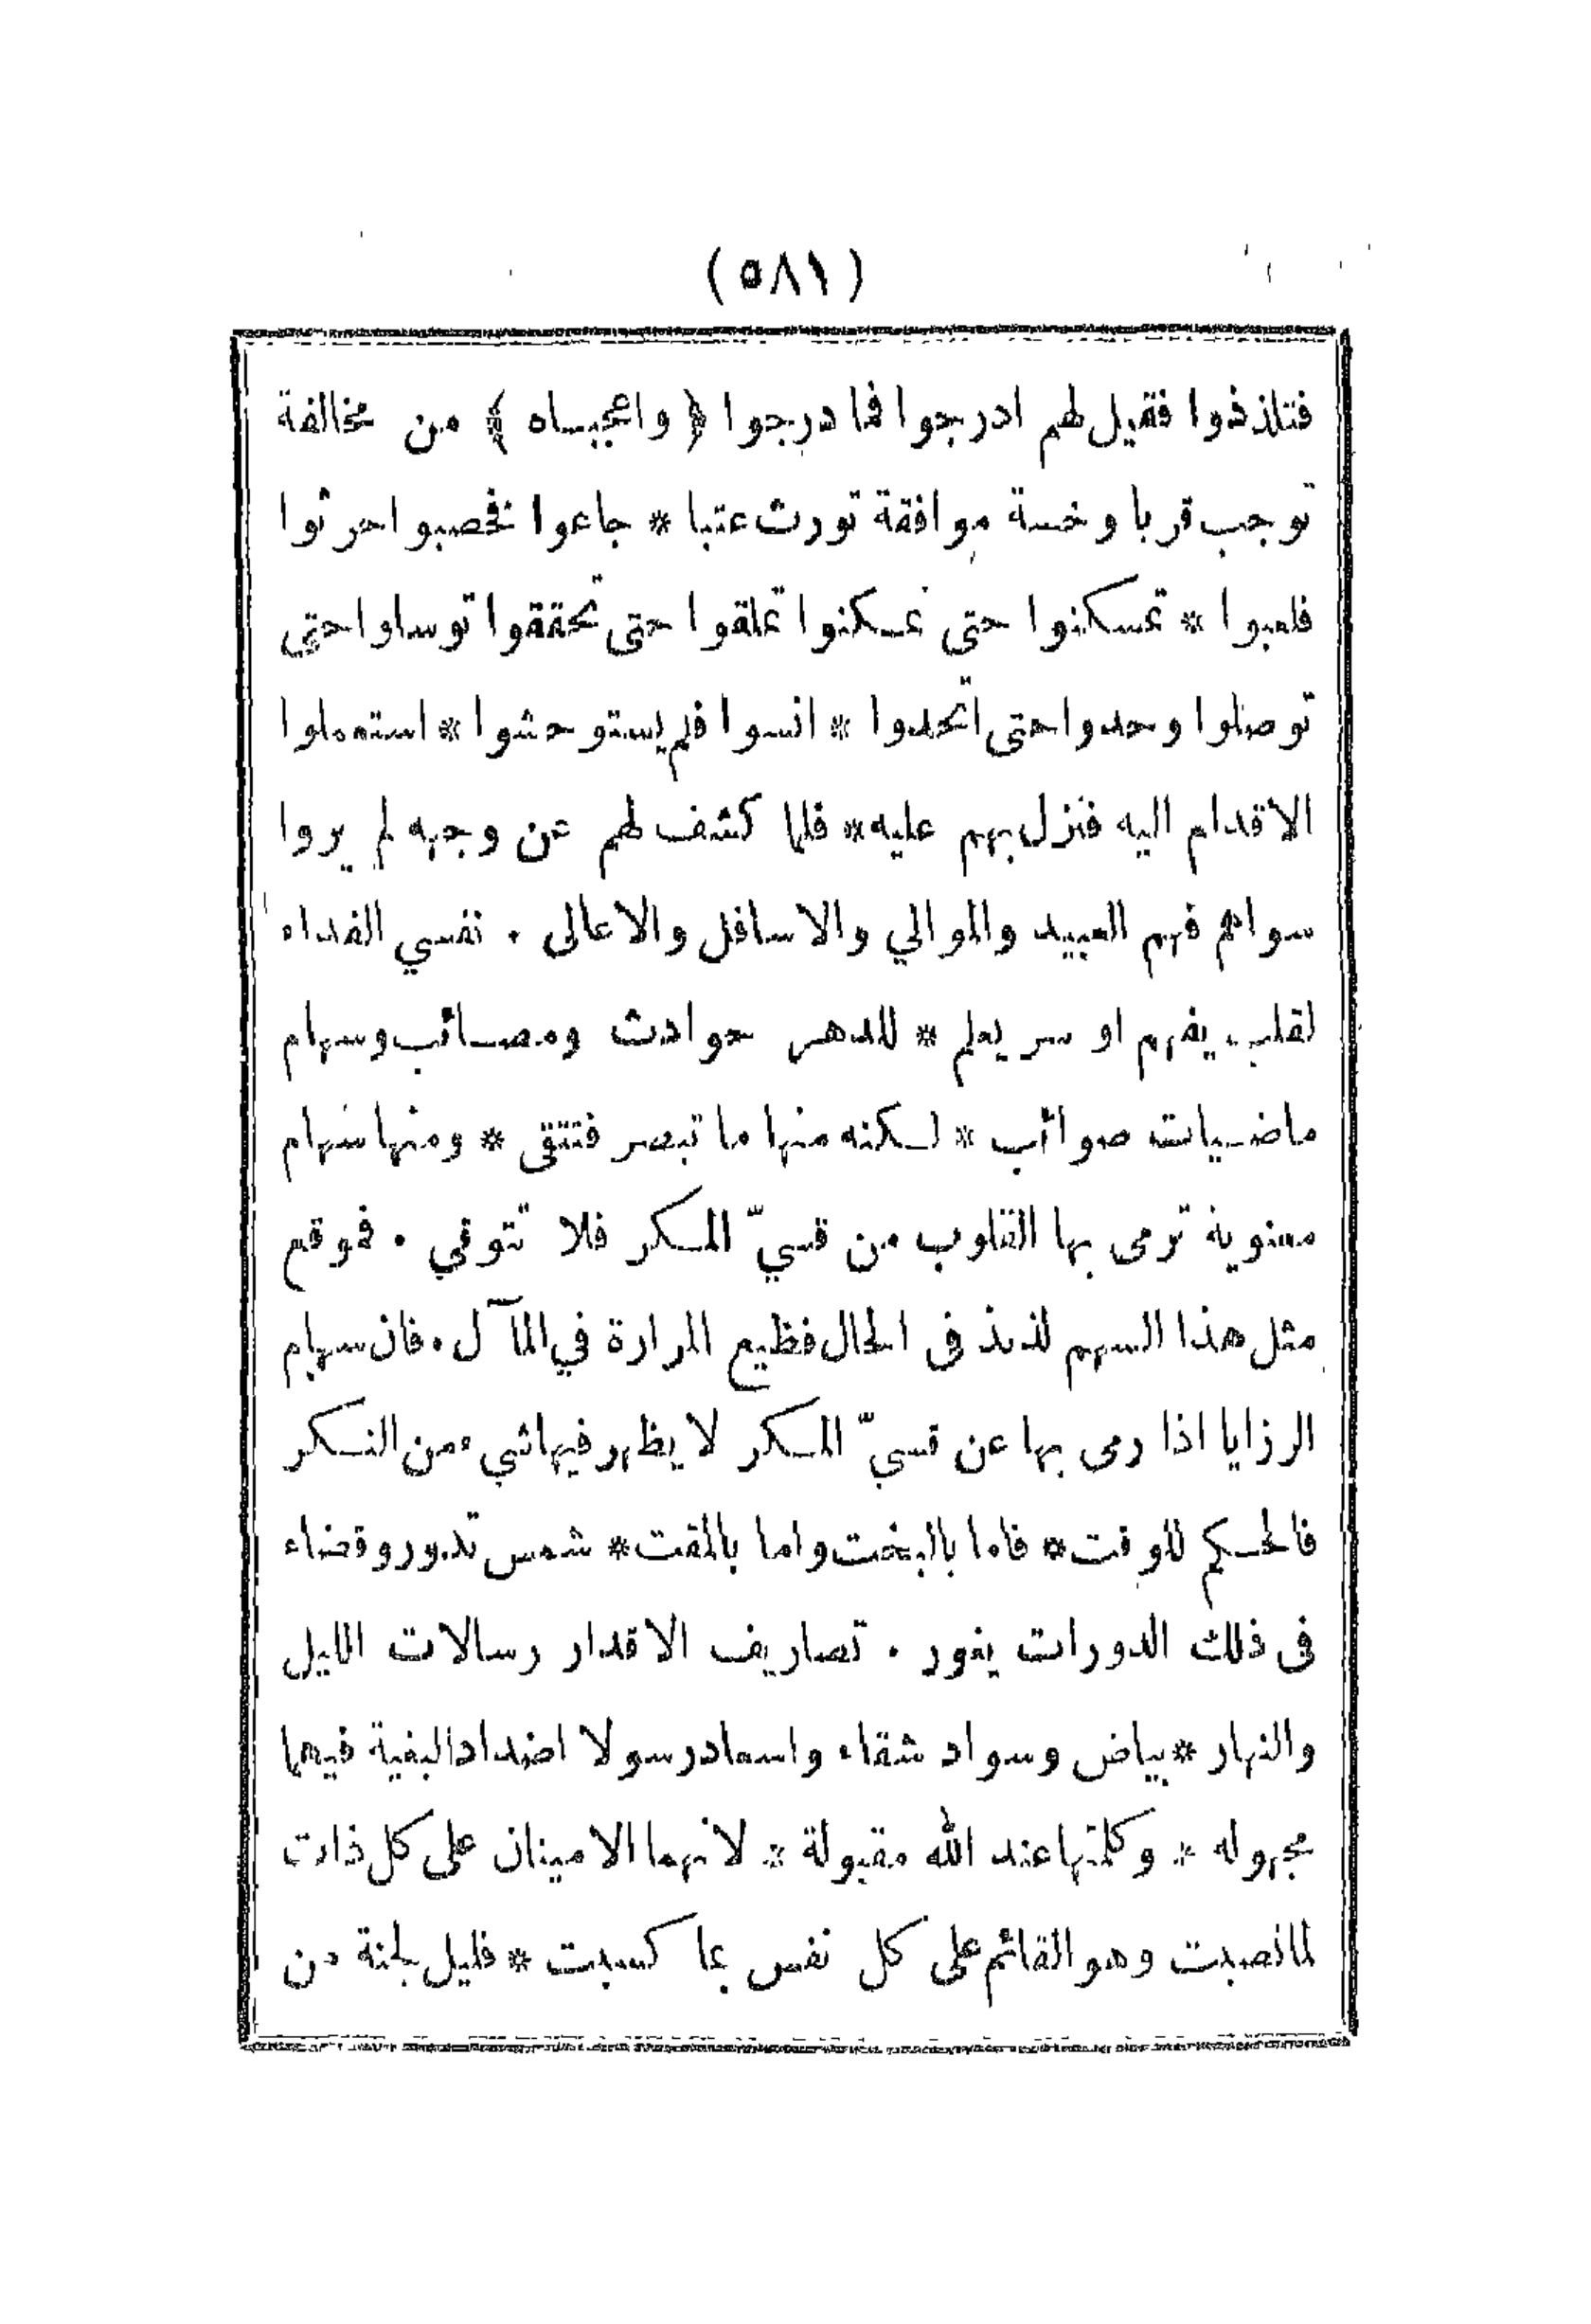 (٥٨١)
فتلذذوا فقيل لهم ادرجوا فما درجوا ﴿ واعجباه ﴾ من مخالفة
توجب قربا وخسة موافقة تورث عتبا * جاعوا نخصبوا حرثوا
فلعبوا * تمسكنوا حتى تمسكنوا تملقوا حتى تحققوا توسلوا حتى
توصلوا وحدوا حتى اتحدوا * انسوا فلم يستوحشوا * استعملوا
الاقدام اليه فنزل بهم عليه * فلما كشف لهم عن وجهه لم يروا
سواهم فهم العبيد والموالي والاسافل والاعالى . نفسي الفداء
لقلب يفهم او سر يعلم * للدهر حوادث ومصائب وسهام
ماضيات صوائب * لكنه منها ما تبصر فتتقى * ومنها سهام
معنوية ترمى بها القلوب من قسيّ المكر فلا تتوقي . فموقع
مثل هذا السهم لذيذ فى الحال فظيع المرارة في المآل . فان سهام
الرزايا اذا رمى بها عن قسيّ المكر لا يظهر فيها شيء من النكر
فالحكم للوقت * فاما بالبخت واما بالمقت * شمس تدور وقضاء
فى ذلك الدورات يغور . تصاريف الاقدار رسالات الليل
والنهار * بياض وسواد شقاء واسعاد رسولا اضداد البغية فيهما
مجهوله * وكلمتها عند الله مقبولة * لانهما الامينان على كل ذات
لما نصبت وهو القائم على كل نفس بما كسبت * فليل لجنة من